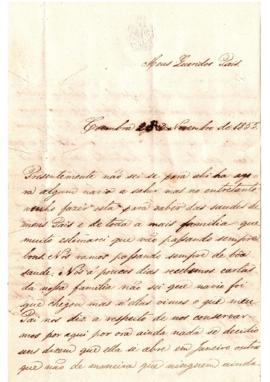 Meus Queridos Pais
Coimbra 28 de Novembro de 1855.
Presentemente não sei se para ahi ha ago
ra algum navio a sahir mas no entretanto
venho fazer esta para saber das saudes de
meus Pais e de toda a mais familia que
muito estimarei que vão passando sempre
bons. Nós vamos passando sempre de bôa
saude. Nós a poucos dias recebemos cartas
da nossa familia não sei que navio foi
que chegou mas n'ellas vimos o que meu
Pai nos diz a respeito de nos conservar
mos por aqui por ora ainda nada se decidio
uns dizem que ella se abre em Janeiro outros
que não de maneira que ninguem ainda